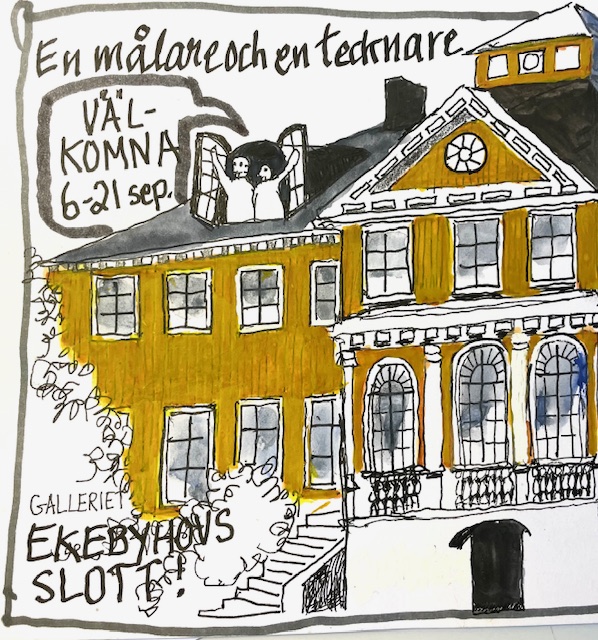 En målare och en tecknare
VÄL-
KOMNA
6-21 sep.
GALLERIET
EKEBYHOVS
SLOTT!